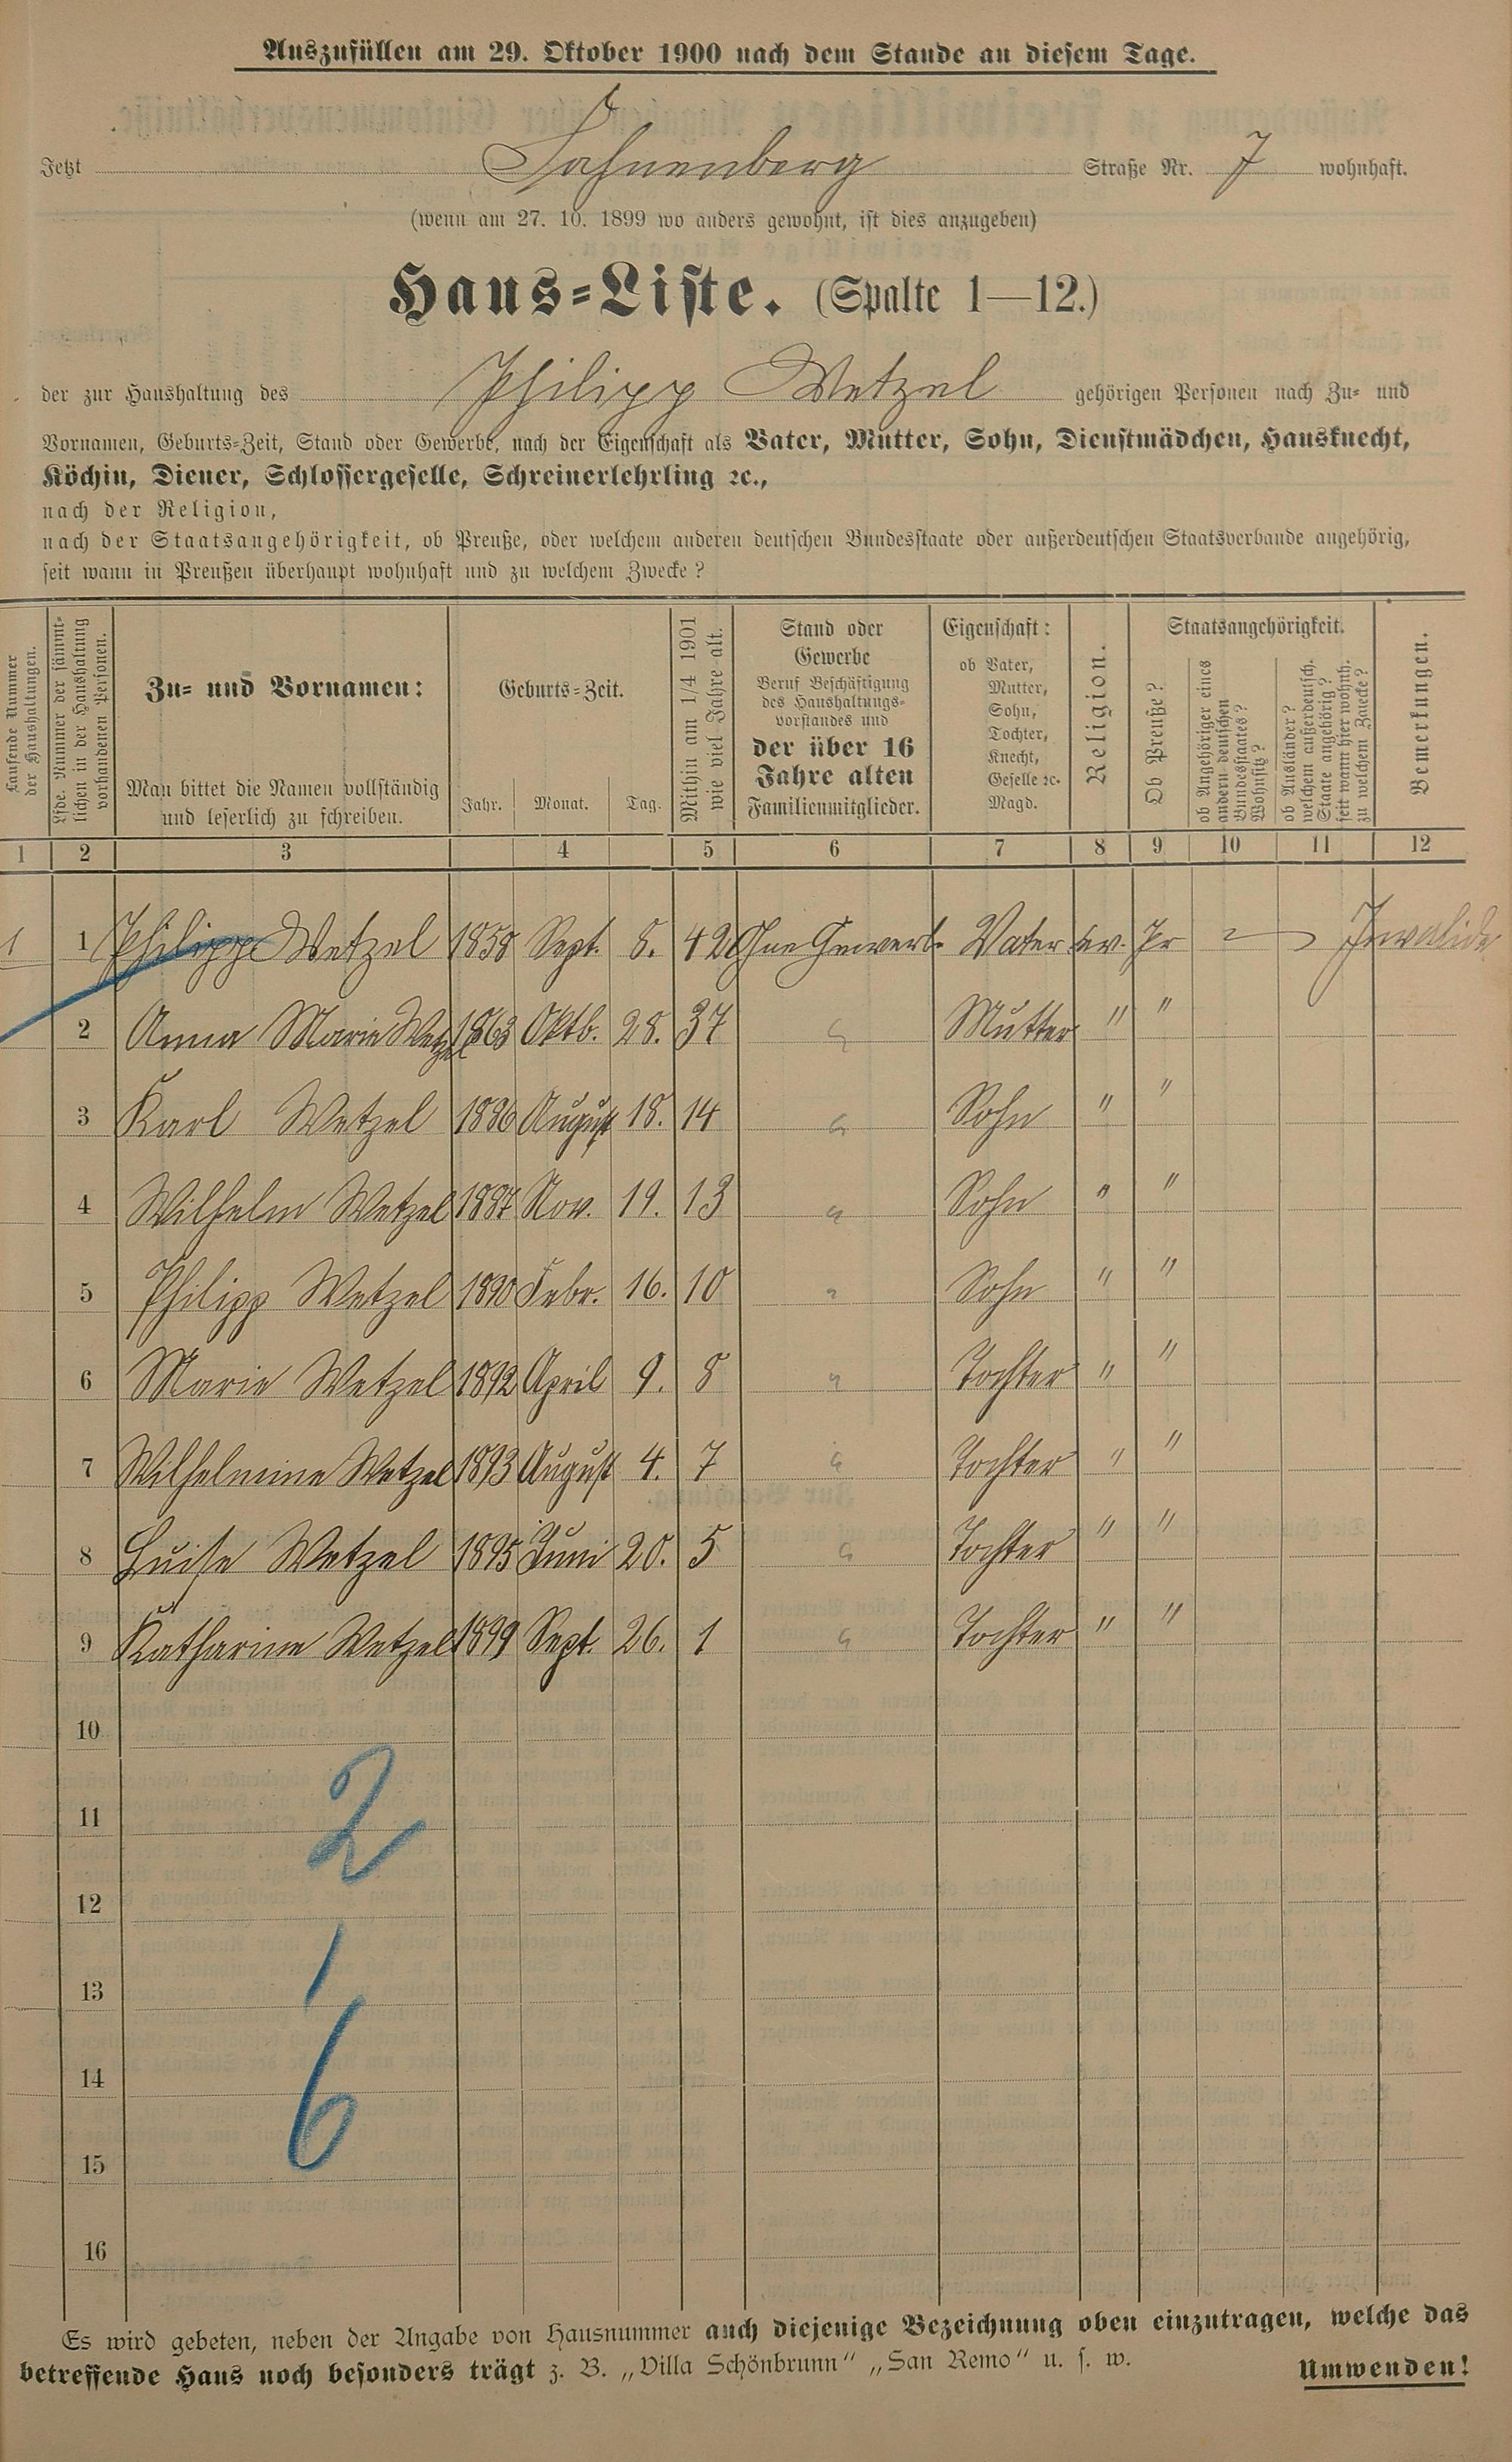 Auszufüllen am 29. Oktober 1900 nach dem Stande an diesem Tage.
Jetzt Fahnenberg Straße Nr. 7 wohnhaft.
(wenn am 27. 10. 1899 wo anders gewohnt, ist dies anzugeben)
Haus-Liste. (Spalte 1—12.)
der zur Haushaltung des Philipp Wetzel gehörigen Personen nach Zu- und
Vornamen, Geburts-Zeit, Stand oder Gewerbe, nach der Eigenschaft als Vater, Mutter, Sohn, Dienstmädchen, Hausknecht,
Köchin, Diener, Schlossergeselle, Schreinerlehrling ꝛc.,
nach der Religion,
nach der Staatsangehörigkeit, ob Preuße, oder welchem anderen deutschen Bundesstaate oder außerdeutschen Staatsverbande angehörig,
seit wann in Preußen überhaupt wohnhaft und zu welchem Zwecke?
Laufende Nummer
der Haushaltungen.
Lfde. Nummer der sämmt-
lichen in der Haushaltung
vorhandenen Personen.
Zu- und Vornamen:
Man bittet die Namen vollständig
und leserlich zu schreiben.
Geburts-Zeit.
Jahr. Monat. Tag.
Mithin am 1/4 1901
wie viel Jahre alt.
Stand oder
Gewerbe
Beruf Beschäftigung
des Haushaltungs-
vorstandes und
der über 16
Jahre alten
Familienmitglieder.
Eigenschaft:
ob Vater,
Mutter,
Sohn,
Tochter,
Knecht,
Geselle ꝛc.
Magd.
Religion.
Staatsangehörigkeit.
Ob Preuße?
ob Angehöriger eines
andern deutschen
Bundesstaates?
Wohnsitz?
ob Ausländer?
welchem außerdeutsch.
Staate angehörig?
seit wann hier wohnh.
zu welchem Zwecke?
Bemerkungen.
1 2 3 4 5 6 7 8 9 10 11 12
1 1 Philipp Wetzel 1858 Sept. 8. 42 Ohne Gewerb. Vater ev. Pr Invalide
2 Anna Marie Wetzel 1863 Oktb. 28. 37 Mutter " "
3 Karl Wetzel 1886 August 18. 14 Sohn " "
4 Wilhelm Wetzel 1887 Nov. 19. 13 Sohn " "
5 Philipp Wetzel 1890 Febr. 16. 10 Sohn " "
6 Marie Wetzel 1892 April 9. 8 Tochter " "
7 Wilhelmine Wetzel 1893 August 4. 7 Tochter " "
8 Luise Wetzel 1895 Juni 20. 5 Tochter " "
9 Katharine Wetzel 1899 Sept. 26. 1 Tochter " "
10
11
2
12
13
1
14
6
15
16
Es wird gebeten, neben der Angabe von Hausnummer auch diejenige Bezeichnung oben einzutragen, welche das
betreffende Haus noch besonders trägt z. B. „Villa Schönbrunn“ „San Remo“ u. s. w.
Umwenden!